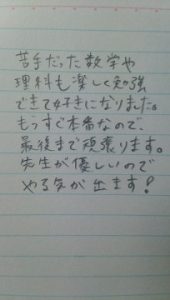 苦手だった数学や
理科も楽しく勉強
できて好きになりました。
もうすぐ本番なので、
最後まで頑張ります。
先生が優しいので
やる気が出ます!